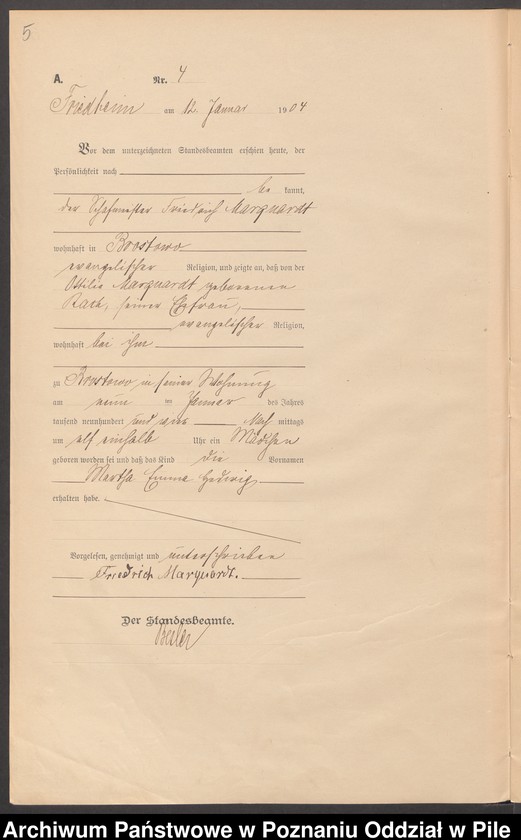 5
A. Nr. 4
Friedheim am 12. Januar 1904
Vor dem unterzeichneten Standesbeamten erschien heute, der
Persönlichkeit nach
be kannt,
der Schafmeister Friedrich Marquardt
wohnhaft in Brostowo
evangelischer Religion, und zeigte an, daß von der
Ottilie Marquardt geborenen
seiner Ehefrau,
evangelischer Religion,
wohnhaft bei ihm
zu Brostowo in seiner Wohnung
am neun im Januar des Jahres
tausend neunhundert und vier Nach mittags
um elf einhalb Uhr ein Mädchen
geboren worden sei und daß das Kind die Vornamen
Martha Emma Hedwig
erhalten habe.
Vorgelesen, genehmigt und unterschrieben
Friedrich Marquardt.
Der Standesbeamte.
Archiwum Państwowe w Poznaniu Oddział w Pile